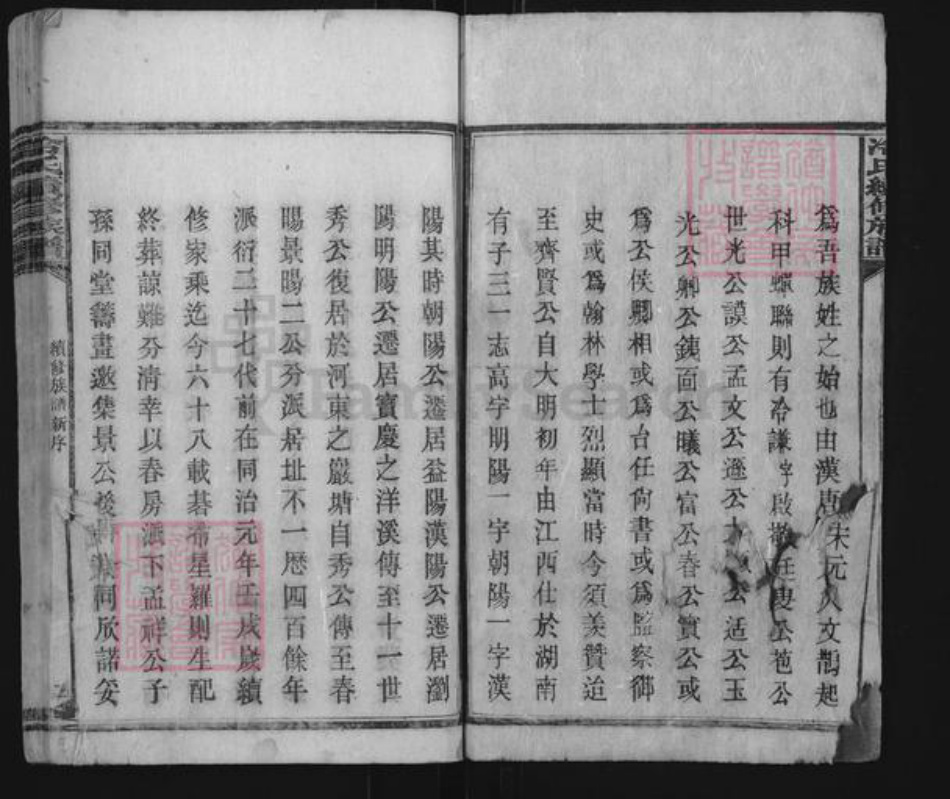 冷氏續修族譜
爲吾族姓之始也由漢唐宋元人文鵲起
科甲蟬聯則有冷謙字啟敬廷叟公苞公
世光公謨公孟文公遜公才公适公玉
光公卿公銕面公曦公富公春公實公或
爲公侯卿相或爲台任尙書或爲監察御
史或爲翰林學士烈顯當時今須美贊迨
至齊賢公自大明初年由江西仕於湖南
有子三一志高字明陽一字朝陽一字漢
陽其時朝陽公遷居益陽漢陽公遷居瀏
陽明陽公遷居寳慶之洋溪傳至十一世
秀公復居於河東之巖塘自秀公傳至春
陽景陽二公分派居址不一歷四百餘年
派衍二十七代前在同治元年壬戌歲續
修家乘迄今六十八載碁希星羅則生配
終葬諒難分淸幸以春房派下孟祥公子
孫同堂籌畫邀集景公後詞欣諾妥
續修族譜新序
冷氏續修族譜
Family Search